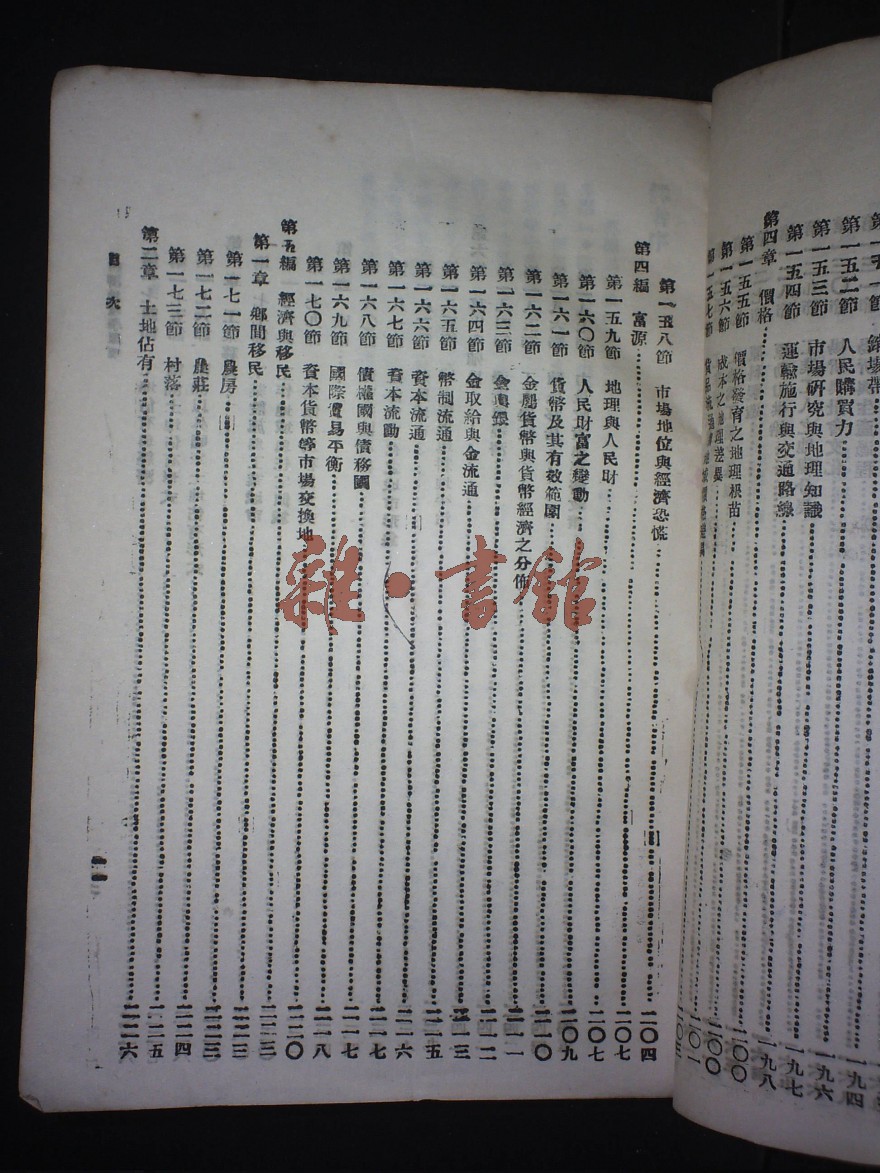 第一五一節 銷場帶……一九四
第一五二節 人民購買力……一九六
第一五三節 市場研究與地理知識……一九七
第一五四節 運輸施行與交通路線……一九八
第四章 價格……二〇〇
第一五五節 價格發育之地理根苗……二〇〇
第一五六節 成本之地理差異……二〇一
第一五七節
第一五八節 市場地位與經濟恐慌……二〇四
第四編 富源……二〇七
第一五九節 地理與人民財……二〇七
第一六〇節 人民財富之變動……二〇九
第一六一節 貨幣及其有效範圍……二一〇
第一六二節 金屬貨幣與貨幣經濟之分佈……二一一
第一六三節 金與銀……二一二
第一六四節 金取給與金流通……二一三
第一六五節 幣制流通……二一五
第一六六節 資本流通……二一六
第一六七節 資本流動……二一七
第一六八節 債權國與債移國……二一七
第一六九節 國際貿易平衡……二一八
第一七〇節 資本貨幣等市場交換地……二二〇
第五編 經濟與移民……二二三
第一章 鄉間移民……二二三
第一七一節 農房……二二三
第一七二節 農莊……二二四
第一七三節 村落……二二五
第二章 土地佔有……二二六
目 次
雜·書館